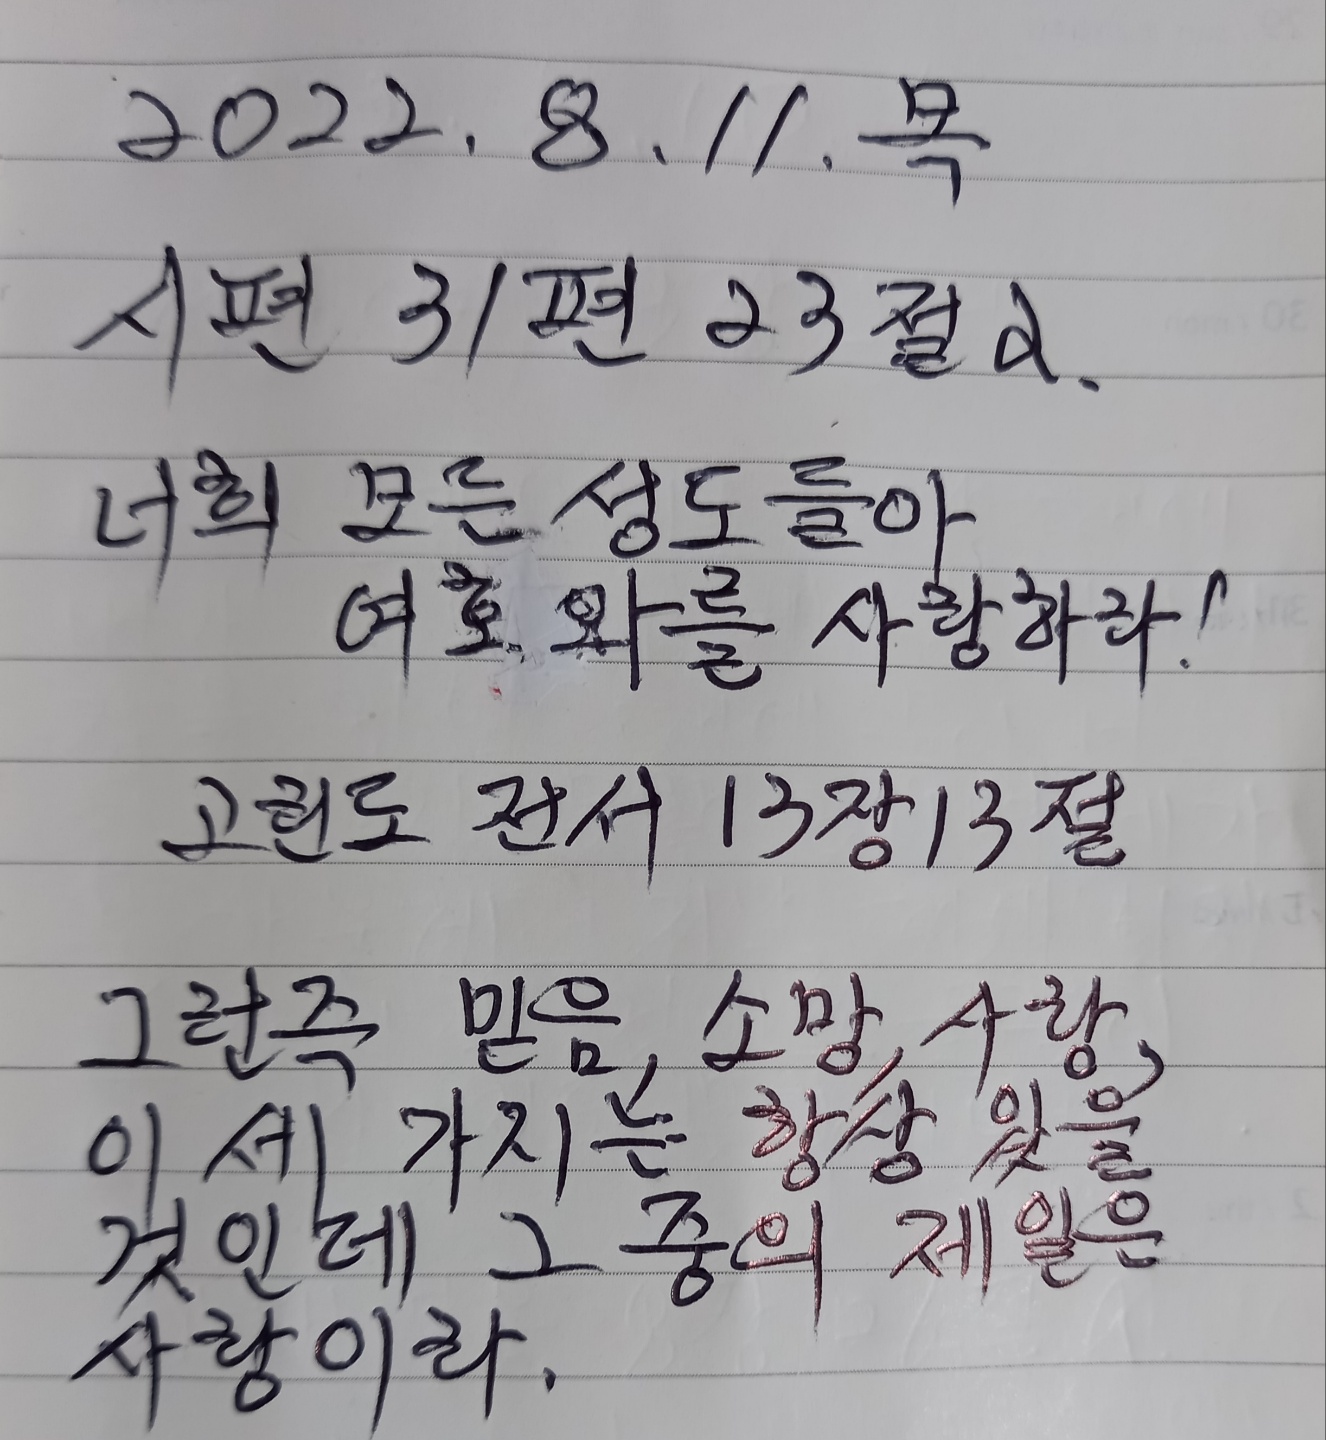 2022. 8. 11. 목
시편 31편 23절 2.
너희 모든 성도들아
여호와를 사랑하라!
고린도 전서 13장 13절
그런즉 믿음, 소망, 사랑,
이 세 가지는 항상 있을
것인데 그 중의 제일은
사랑이라.